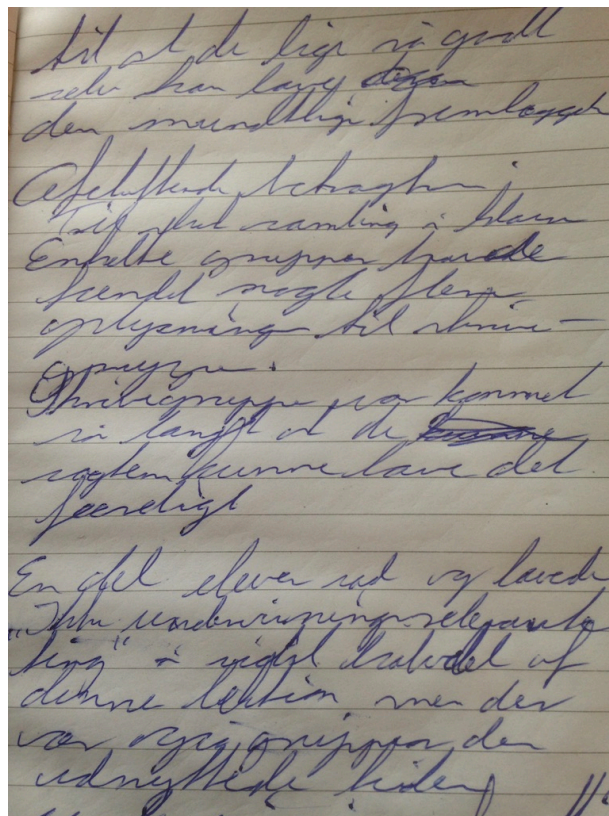 til at de lige så godt
selv kan lave
den mundtlige fremlæggelse
Afsluttende betragtn :
samling i klassen
Enkelte grupper havde
fundet nogle flere
oplysninger til skrive-
gruppe.
Skrivegruppe var kommet
så langt at de
sagtens kunne lave det
færdigt
En del elever sad og lavede
"Ikke undervisningsrelevante
ting" i sidste halvdel af
denne lektion, men der
var også grupper der
udnyttede tiden